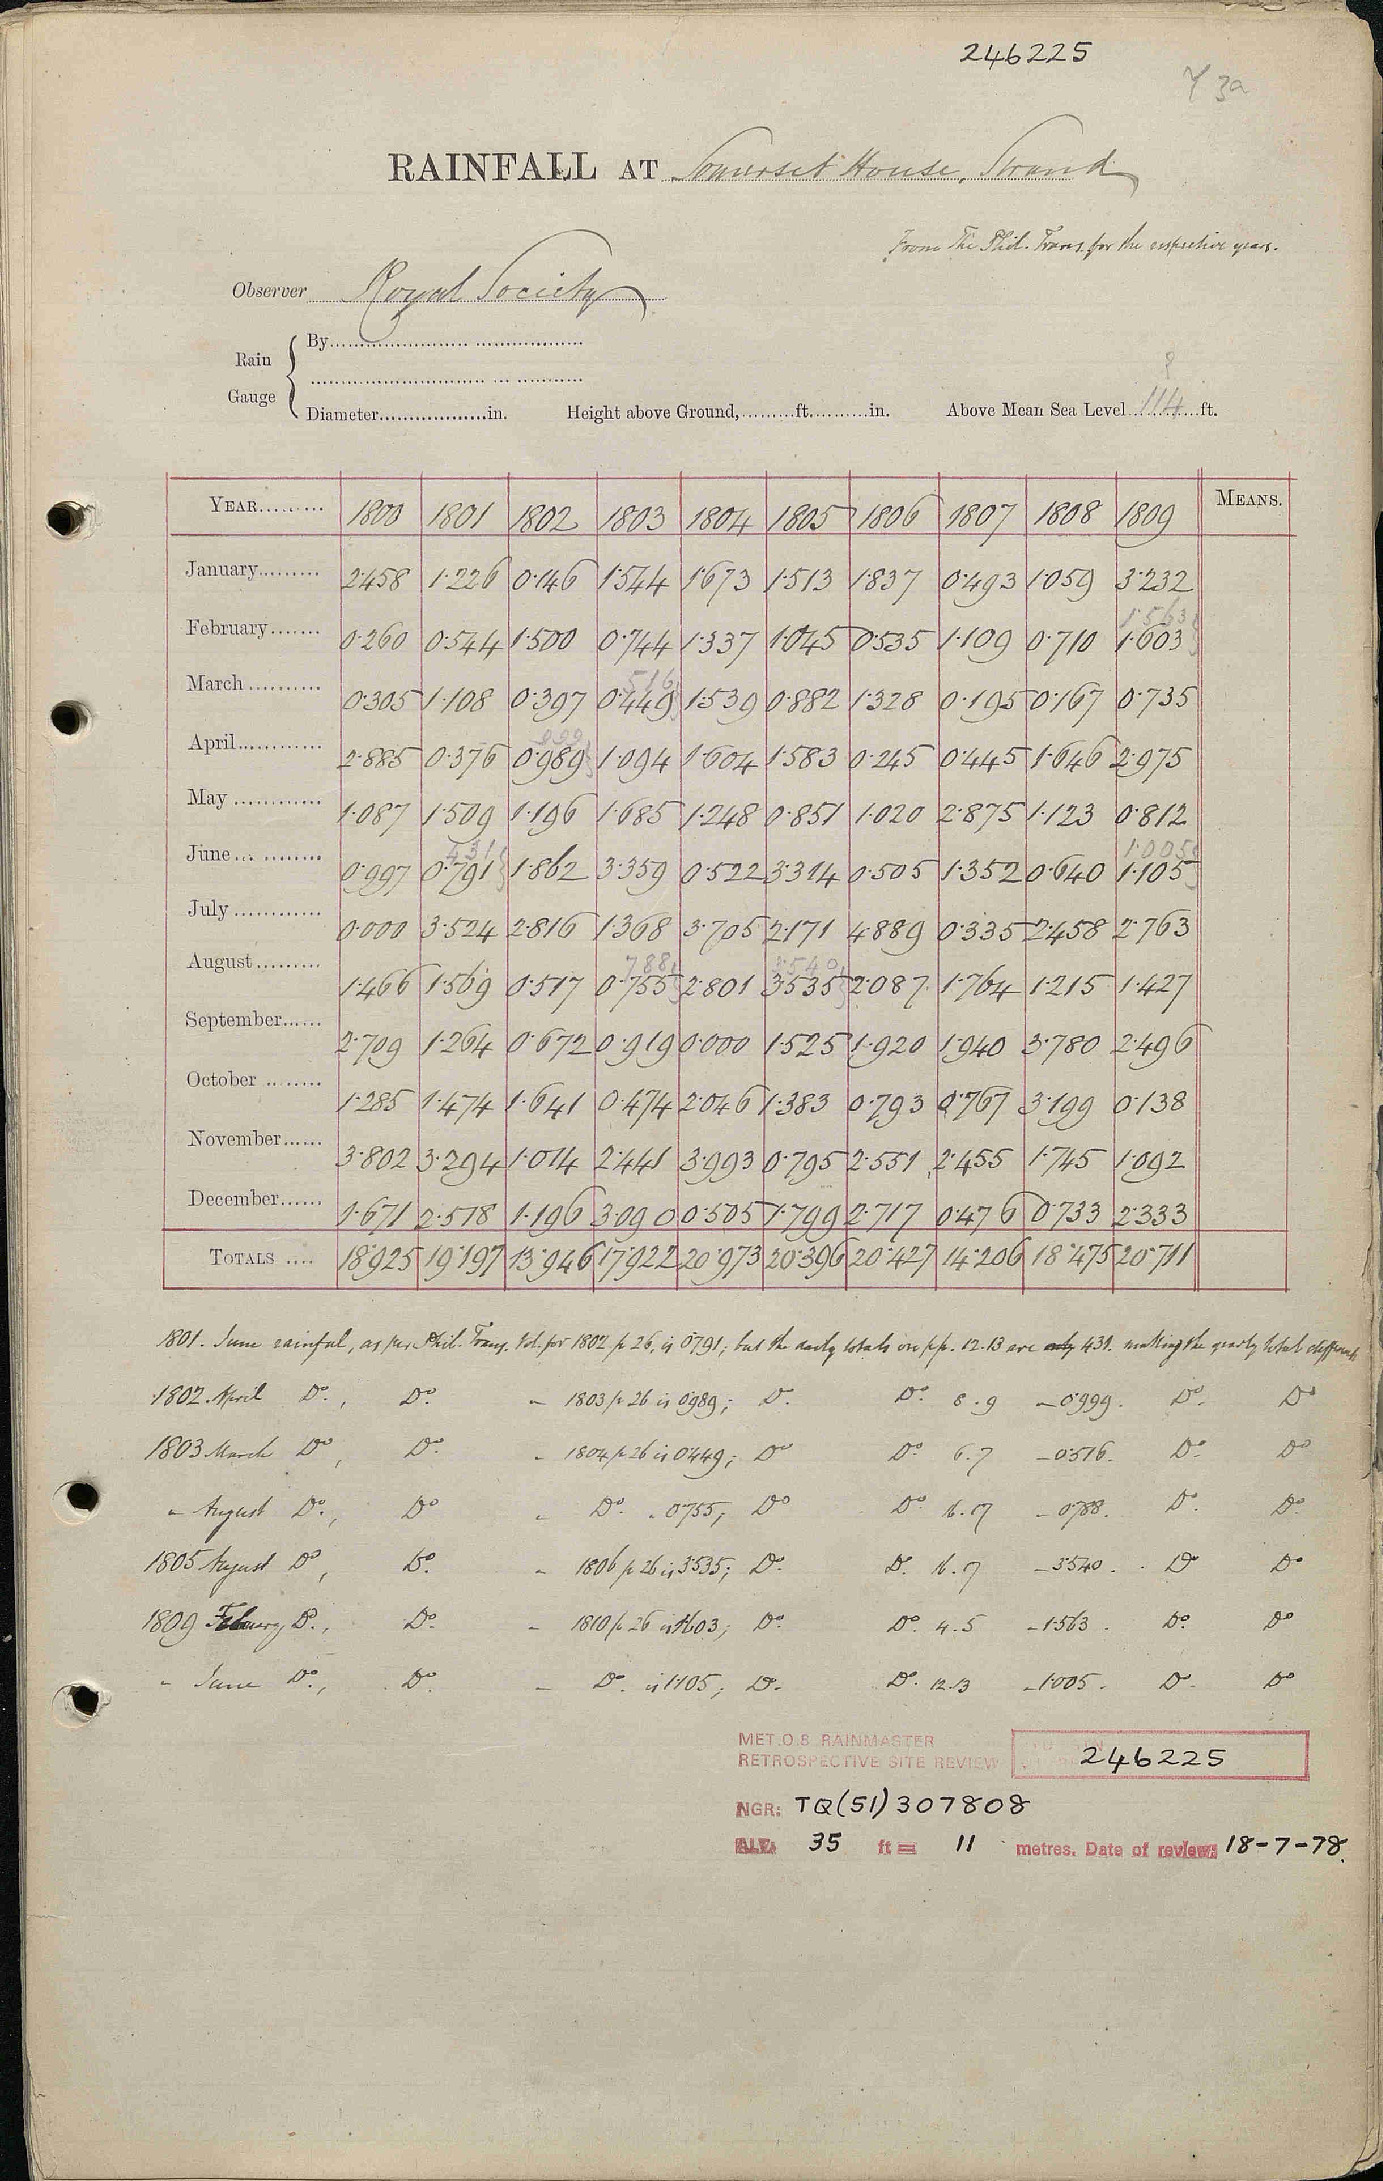 246225
Y 3a
RAINFALL AT Somerset House, Strand
From the Phil. Trans. for the respective years.
Observer Royal Society
Rain Gauge { By
Diameter in. Height above Ground, ft. in. Above Mean Sea Level 114 ? ft.
YEAR 1800 1801 1802 1803 1804 1805 1806 1807 1808 1809 MEANS.
January 2·458 1·226 0·146 1·544 1·673 1·513 1·837 0·493 1·059 3·232
1·563
February 0·260 0·544 1·500 0·744 1·337 1·045 0·535 1·109 0·710 1·603
516
March 0·305 1·108 0·397 0·449 1·539 0·882 1·328 0·195 0·167 0·735
999
April 2·885 0·376 0·989 1·094 1·604 1·583 0·245 0·445 1·646 2·975
May 1·087 1·509 1·196 1·685 1·248 0·851 1·020 2·875 1·123 0·812
431 1·005
June 0·997 0·791 1·862 3·359 0·522 3·314 0·505 1·352 0·640 1·105
July 0·000 3·524 2·816 1·368 3·705 2·171 4·889 0·335 2·458 2·763
788 3·540
August 1·466 1·569 0·517 0·755 2·801 3·535 2·087 1·764 1·215 1·427
September 2·709 1·264 0·672 0·919 0·000 1·525 1·920 1·940 3·780 2·496
October 1·285 1·474 1·641 0·474 2·046 1·383 0·793 0·767 3·199 0·138
November 3·802 3·294 1·014 2·441 3·993 0·795 2·551 2·455 1·745 1·092
December 1·671 2·518 1·196 3·090 0·505 1·799 2·717 0·476 0·733 2·333
TOTALS 18·925 19·197 13·946 17·922 20·973 20·396 20·427 14·206 18·475 20·711
1801. June rainfal, as per Phil. Trans. Vol. for 1802 p 26, is 0·791; but the daily totals on pp. 12-13 are only 431. making the yearly total different
1802 April Do., Do. " 1803 p 26 is 0·989; Do. Do. 8.9 - 0·999. Do. Do
1803 March Do, Do. " 1804 p 26 is 0·449; Do Do. 6.7 - 0·516. Do. Do
" August Do., Do " Do. . 0·755; Do Do 16.17 - 0·788. Do. Do.
1805 August Do, Do. " 1806 p 26 is 3·535; Do. Do. 16.17 - 3·540. Do Do
1809 February Do., Do. " 1810 p 26 is 1·603; Do. Do. 4.5 - 1·563. Do. Do
" June Do., Do. " Do. is 1·105; Do. Do. 12.13 - 1·005. Do. Do
MET.O.8 RAINMASTER
RETROSPECTIVE SITE REVIEW 246225
NGR: TQ(51)307808
ALT. 35 ft = 11 metres. Date of review: 18-7-78.